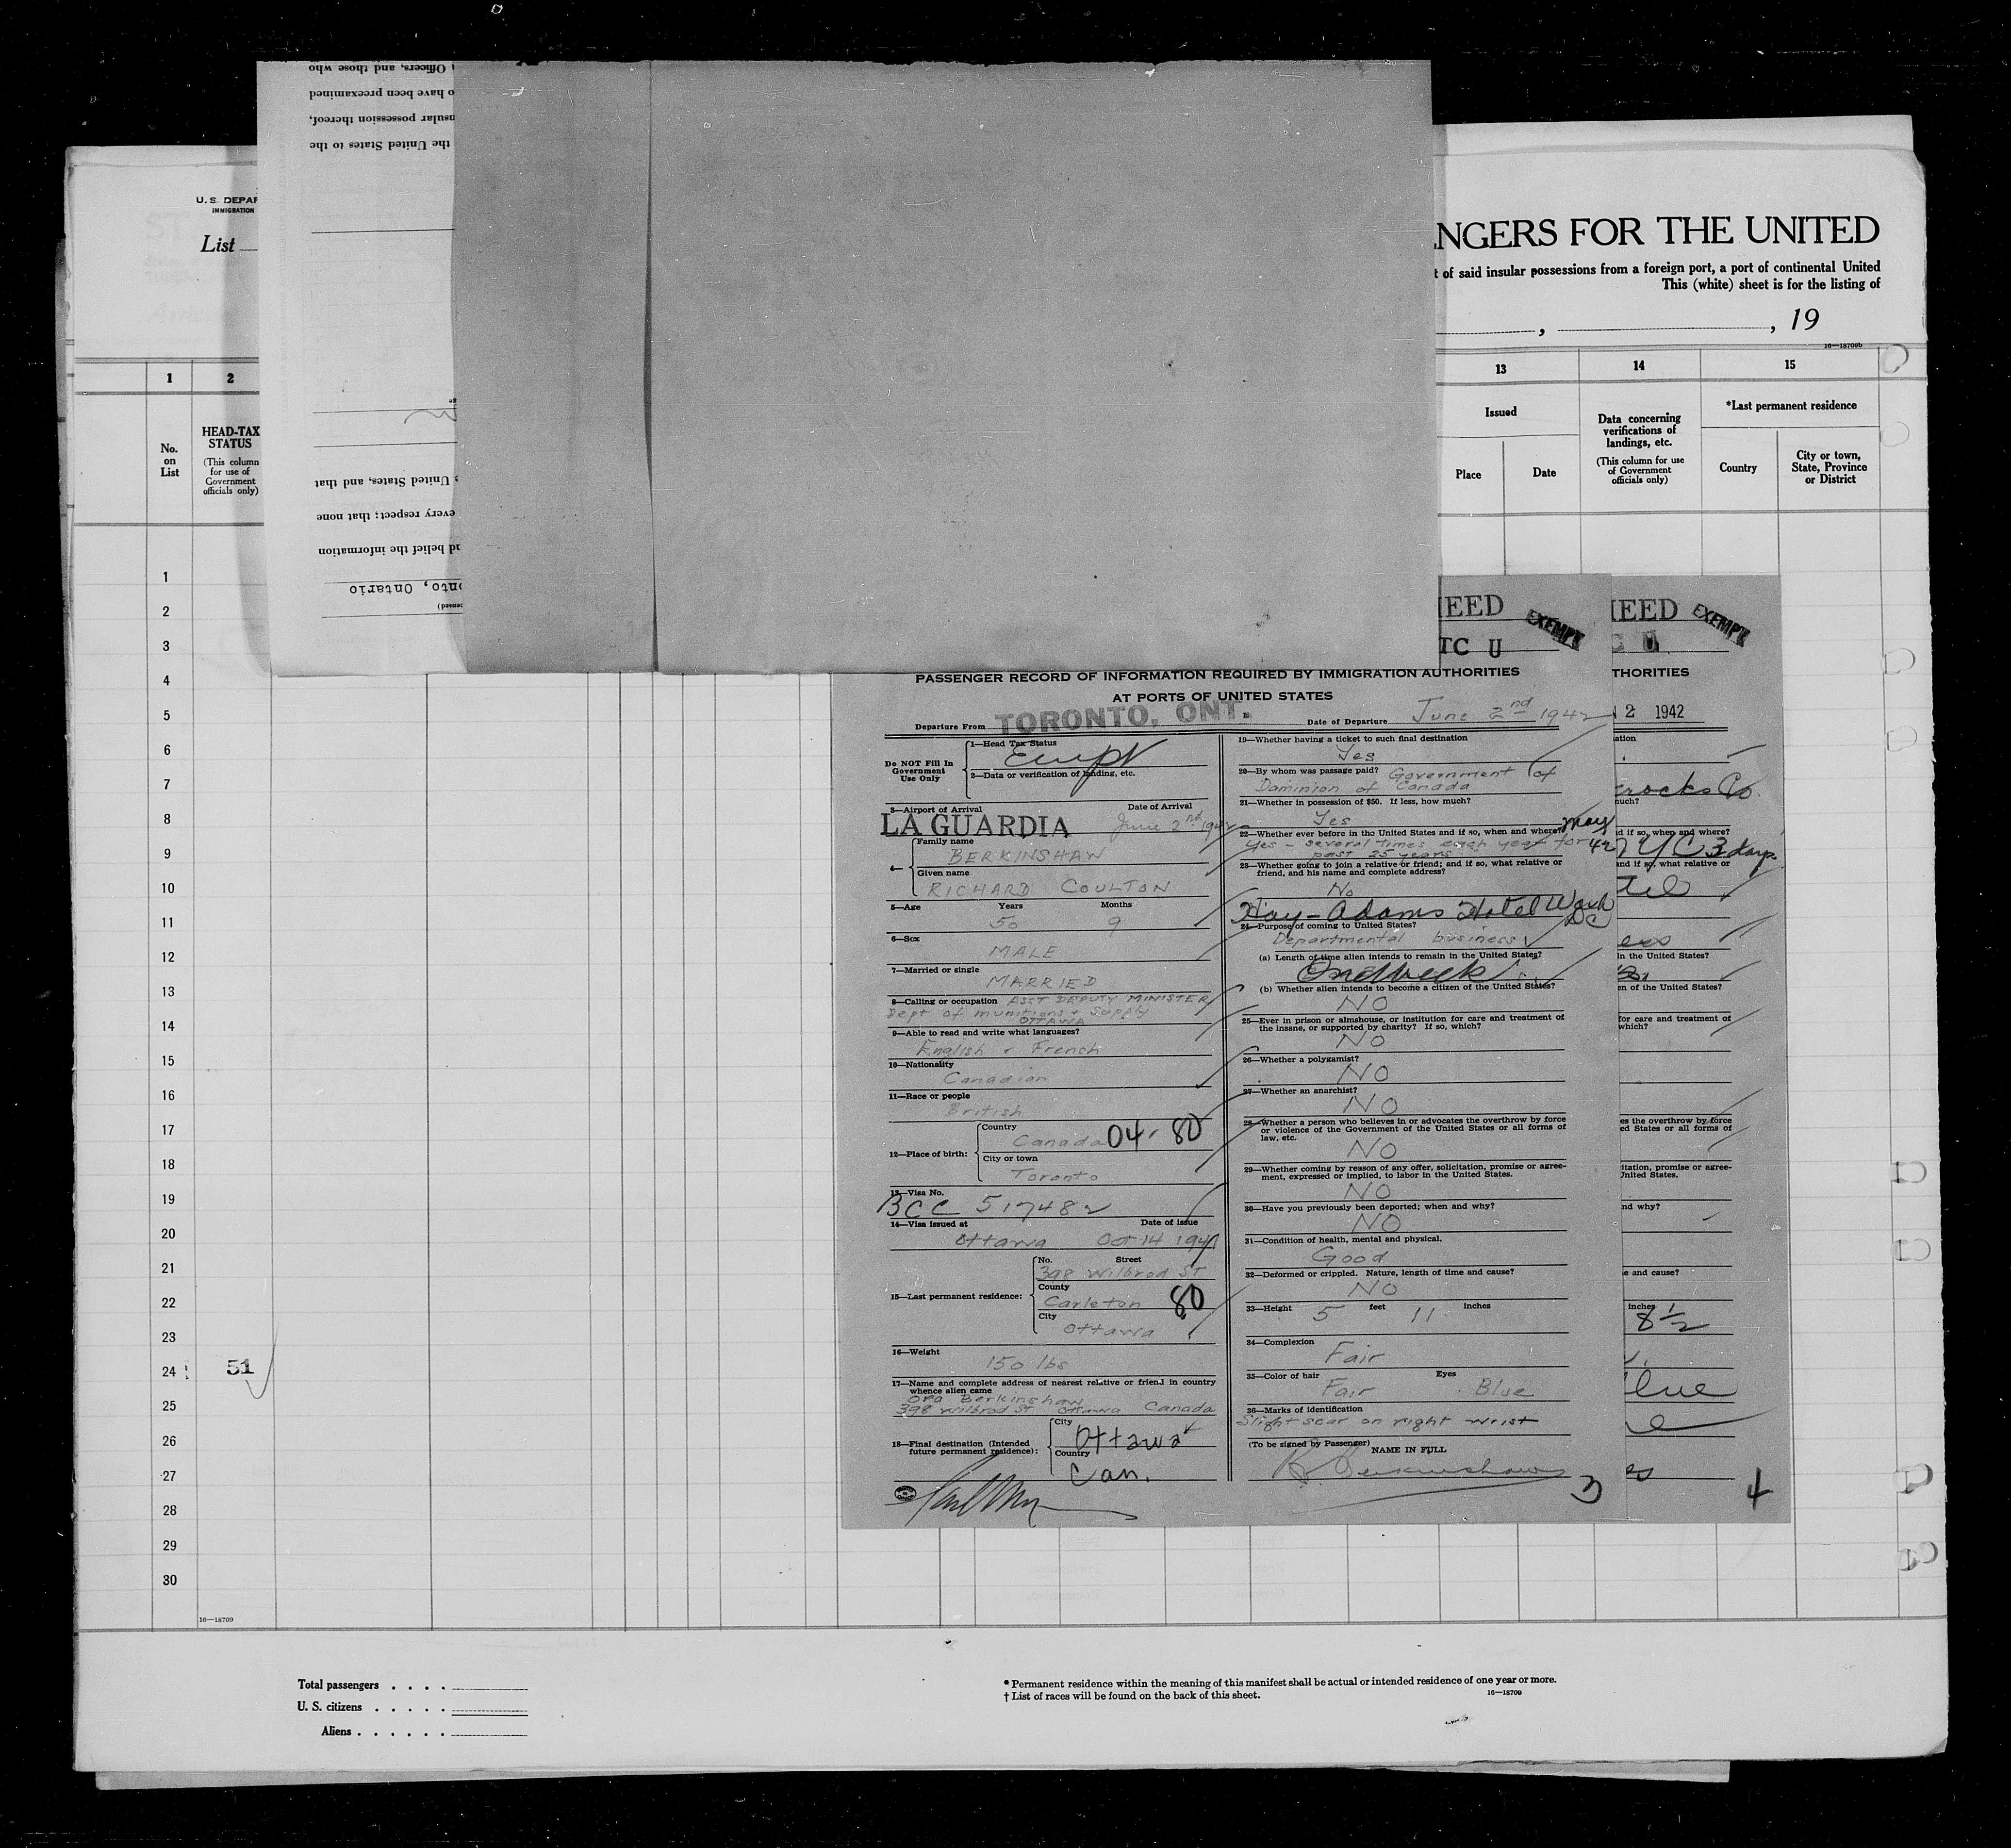 U. S. DEPAR
IMMIGRATION
List
NGERS FOR THE UNITED
t of said insular possessions from a foreign port, a port of continental United
This (white) sheet is for the listing of
, , 19
16—18709b
1 2 13 14 15
No. on List
HEAD-TAX STATUS
(This column for use of Government officials only)
Issued
Place Date
Data concerning verifications of landings, etc.
(This column for use of Government officials only)
*Last permanent residence
Country
City or town, State, Province or District
Officers, and those who
o have been preexamined
nsular possession thereof,
the United States to the
United States, and that
every respect; that none
nd belief the information
nto, Ontario
1
2
3
4
5
6
7
8
9
10
11
12
13
14
15
16
17
18
19
20
21
22
23
24 51
25
26
27
28
29
30
16—18709
EED EXEMPT
TC U
PASSENGER RECORD OF INFORMATION REQUIRED BY IMMIGRATION AUTHORITIES
AT PORTS OF UNITED STATES
Departure From TORONTO, ONT. Date of Departure June 2nd 1942
Do NOT Fill In Government Use Only
1—Head Tax Status
2—Data or verification of landing, etc.
3—Airport of Arrival Date of Arrival
LA GUARDIA June 2nd 1942
4— Family name
BERKINSHAW
Given name
RICHARD COULTON
5—Age Years Months
50 9
6—Sex
MALE
7—Married or single
MARRIED
8—Calling or occupation ASST DEPUTY MINISTER
Dept of munitions + Supply
OTTAWA
9—Able to read and write what languages?
English + French
10—Nationality
Canadian
11—Race or people
British
12—Place of birth: Country
Canada 04-80
City or town
Toronto
13—Visa No.
BCC 517482
14—Visa issued at Date of issue
Ottawa Oct 14 1941
15—Last permanent residence: No. Street
398 Wilbrod St
County
Carleton 80
City
Ottawa
16—Weight
150 lbs
17—Name and complete address of nearest relative or friend in country whence alien came
Ora Berkinshaw
398 Wilbrod St Ottawa Canada
18—Final destination (Intended future permanent residence): City
Ottawa
Country
Can.
19—Whether having a ticket to such final destination
Yes
20—By whom was passage paid? Government of
Dominion of Canada
21—Whether in possession of $50. If less, how much?
Yes
22—Whether ever before in the United States and if so, when and where? May 42
Yes - several times each year for
past 25 years
23—Whether going to join a relative or friend; and if so, what relative or friend, and his name and complete address?
No
Hay-Adams Hotel Wash DC
24—Purpose of coming to United States?
Departmental business
(a) Length of time alien intends to remain in the United States?
One week
(b) Whether alien intends to become a citizen of the United States?
NO
25—Ever in prison or almshouse, or institution for care and treatment of the insane, or supported by charity? If so, which?
NO
26—Whether a polygamist?
NO
27—Whether an anarchist?
NO
28—Whether a person who believes in or advocates the overthrow by force or violence of the Government of the United States or all forms of law, etc.
NO
29—Whether coming by reason of any offer, solicitation, promise or agreement, expressed or implied, to labor in the United States.
NO
30—Have you previously been deported; when and why?
NO
31—Condition of health, mental and physical.
Good
32—Deformed or crippled. Nature, length of time and cause?
NO
33—Height 5 feet 11 inches
34—Complexion
Fair
35—Color of hair Eyes
Fair Blue
36—Marks of identification
Slight scar on right wrist
(To be signed by Passenger) NAME IN FULL
R Berkinshaw
3
EED EXEMPT
THORITIES
2 1942
ation
much?
d if so, when and where?
NYC 3 days
and if so, what relative or
in the United States?
en of the United States?
for care and treatment of
which?
es the overthrow by force
ed States or all forms of
itation, promise or agree-
United States.
nd why?
e and cause?
inches
8 1/2
lue
4
Total passengers . . . .
U. S. citizens . . . . .
Aliens . . . . . .
* Permanent residence within the meaning of this manifest shall be actual or intended residence of one year or more.
† List of races will be found on the back of this sheet. 16—18709